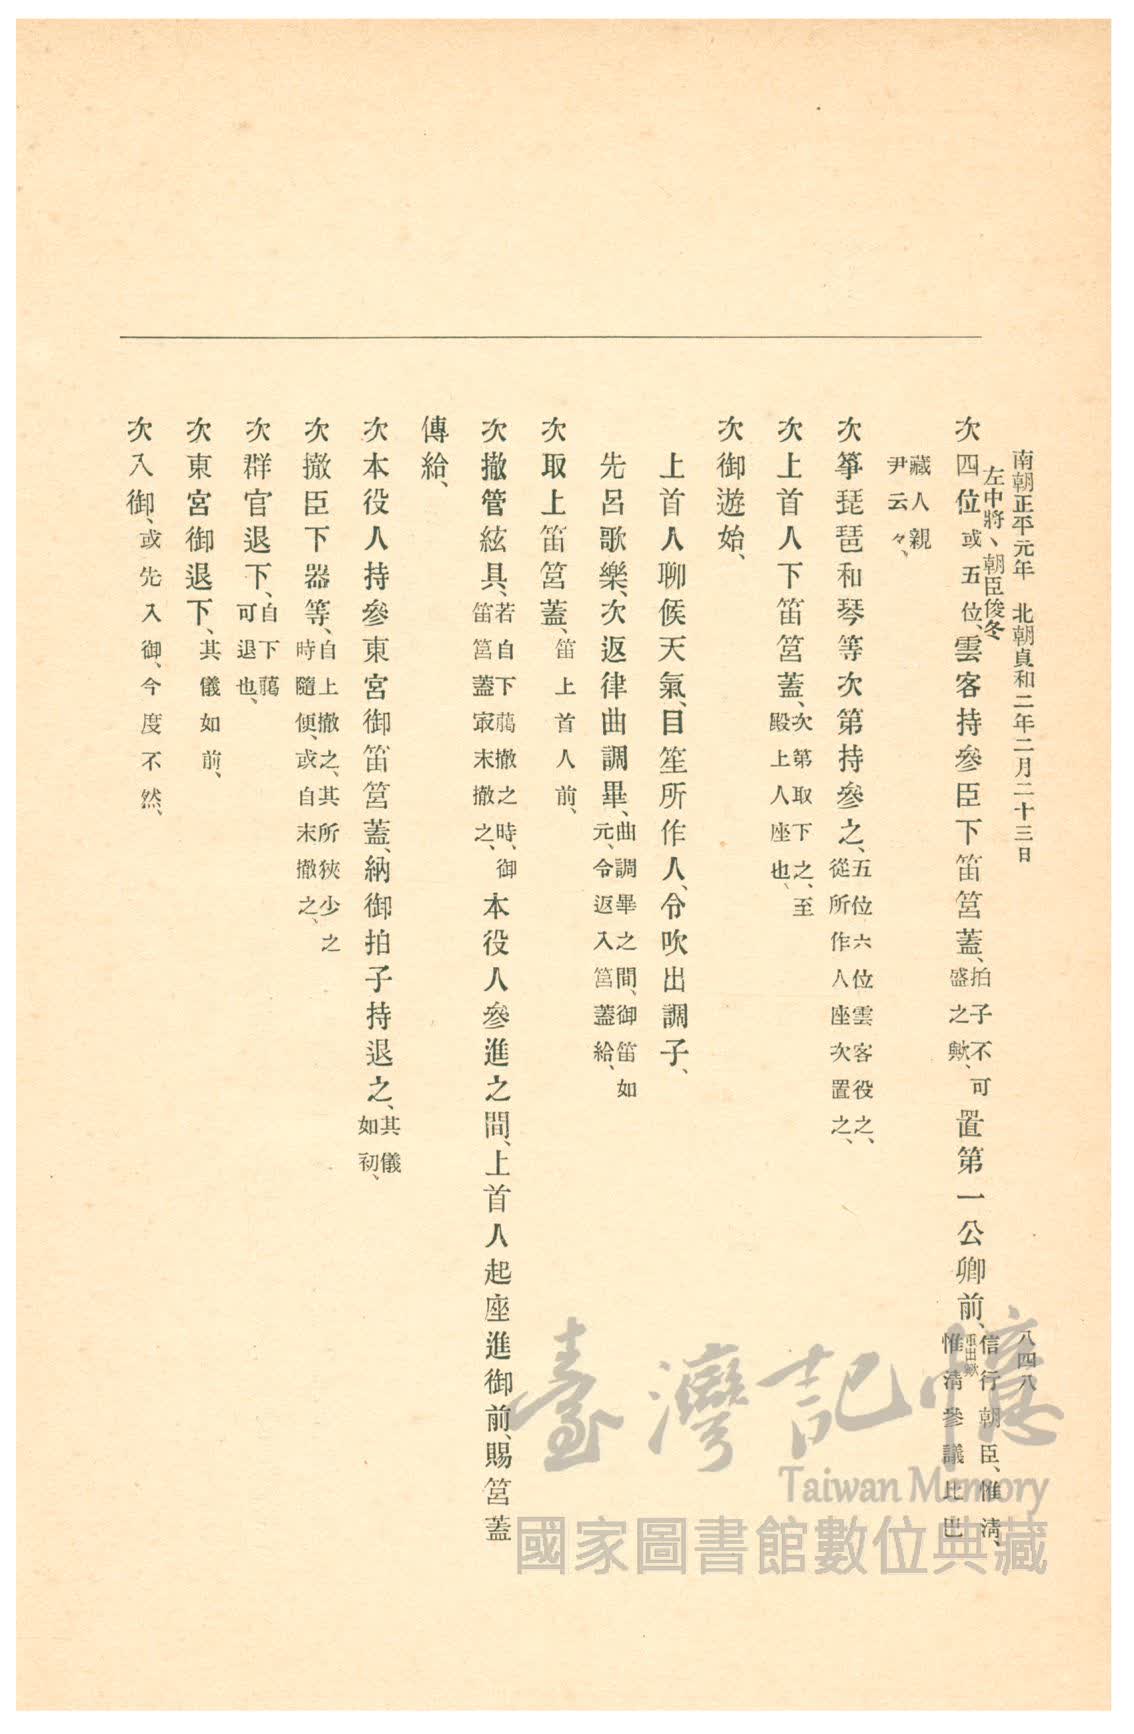 南朝正平元年 北朝貞和二年二月二十三日 八四八
左中將、朝臣俊冬
次四位或五位、雲客持參臣下笛筥蓋、拍子不可盛之歟、置第一公卿前、信行朝臣、惟淸、重出歟惟淸參議比巴
藏人親尹云々、
次箏琵琶和琴等次第持參之、五位六位雲客役之、從所作人座次置之、
次上首人下笛筥蓋、次第取下之、至殿上人座也、
次御遊始、
上首人聊候天氣、目笙所作人、令吹出調子、
先呂歌樂、次返律曲調畢、曲調畢之間、御笛如元、令返入筥蓋給、
次取上笛筥蓋、笛上首人前、
次撤管絃具、若自下﨟撤之時、御笛筥蓋㝡末撤之、本役人參進之間、上首人起座進御前、賜筥蓋
傳給、
次本役人持參東宮御笛筥蓋、納御拍子持退之、其儀如初、
次撤臣下器等、自上撤之、其所狹少之時隨便、或自末撤之、
次群官退下、自下﨟可退也、
次東宮御退下、其儀如前、
次入御、或先入御、今度不然、
臺灣記憶
Taiwan Memory
國家圖書館數位典藏